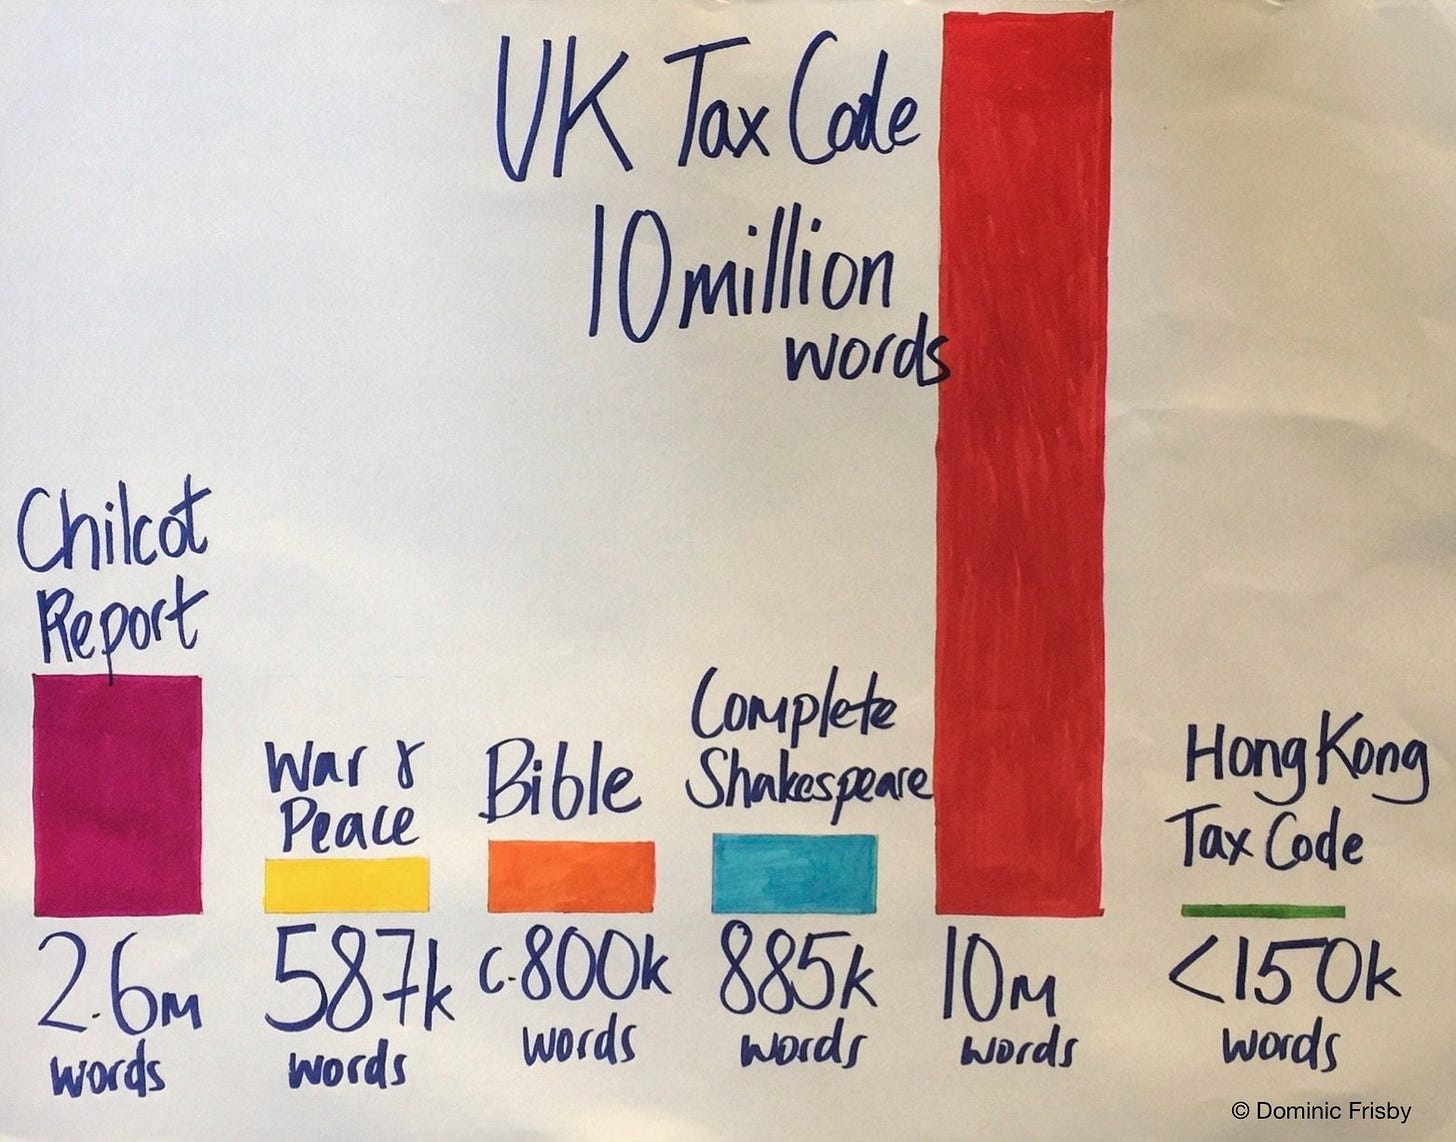 UK Tax Code
10 million
words
Chilcot
Report
2.6m
words
War &
Peace
587k
words
Bible
c.800k
words
Complete
Shakespeare
885k
words
10m
words
Hong Kong
Tax Code
<150k
words
© Dominic Frisby